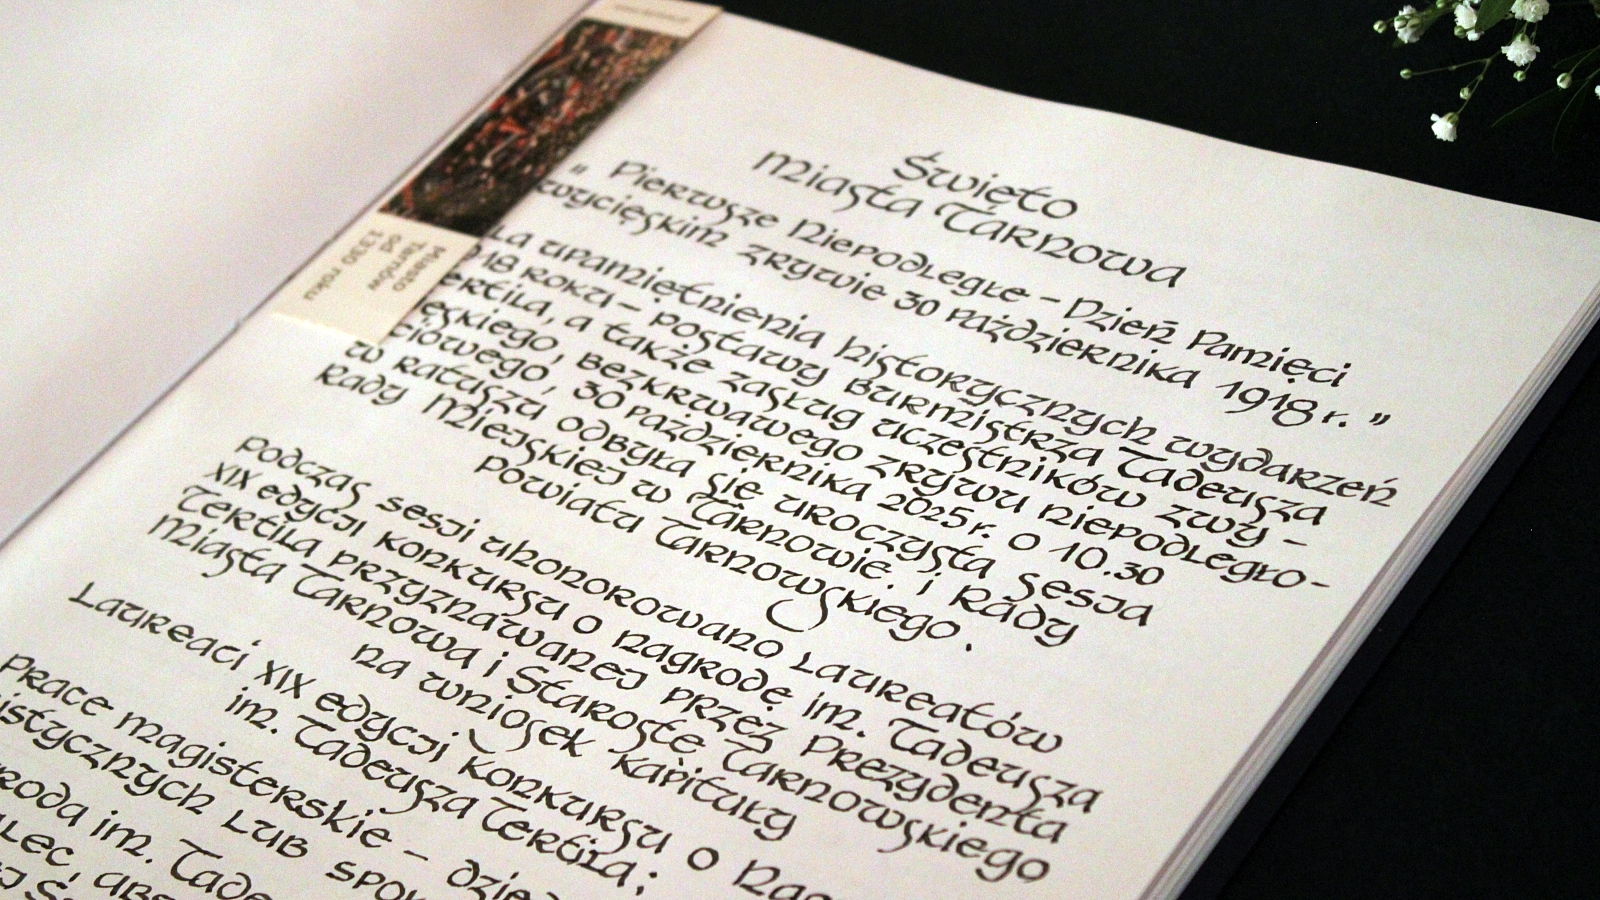 Święto
Miasta Tarnowa
„ Pierwsze Niepodległe – Dzień Pamięci
wycięskim zrywie 30 października 1918 r. ”
La upamiętnienia historycznych wydarzeń
18 roku – postawy Burmistrza Tadeusza
ertila, a także zasług uczestników zwy –
ęskiego, bezkrwawego zrywu niepodległo-
ciowego, 30 października 2025 r. o 10.30
w ratuszu odbyła się uroczysta sesja
Rady Miejskiej w Tarnowie. i Rady
powiatu Tarnowskiego.
podczas sesji uhonorowano Laureatów
XIX edycji konkursu o nagrodę im. Tadeusza
Tertila przyznawanej przez Prezydenta
Miasta Tarnowa i Starostę Tarnowskiego
na wniosek kapituły
Laureaci XIX edycji konkursu o Nag
im. Tadeusza Tertila;
Prace magisterskie – dzied
istycznych lub spo
roda im. Tade
lec, abs
Miasto
Tarnów
od
1330 roku